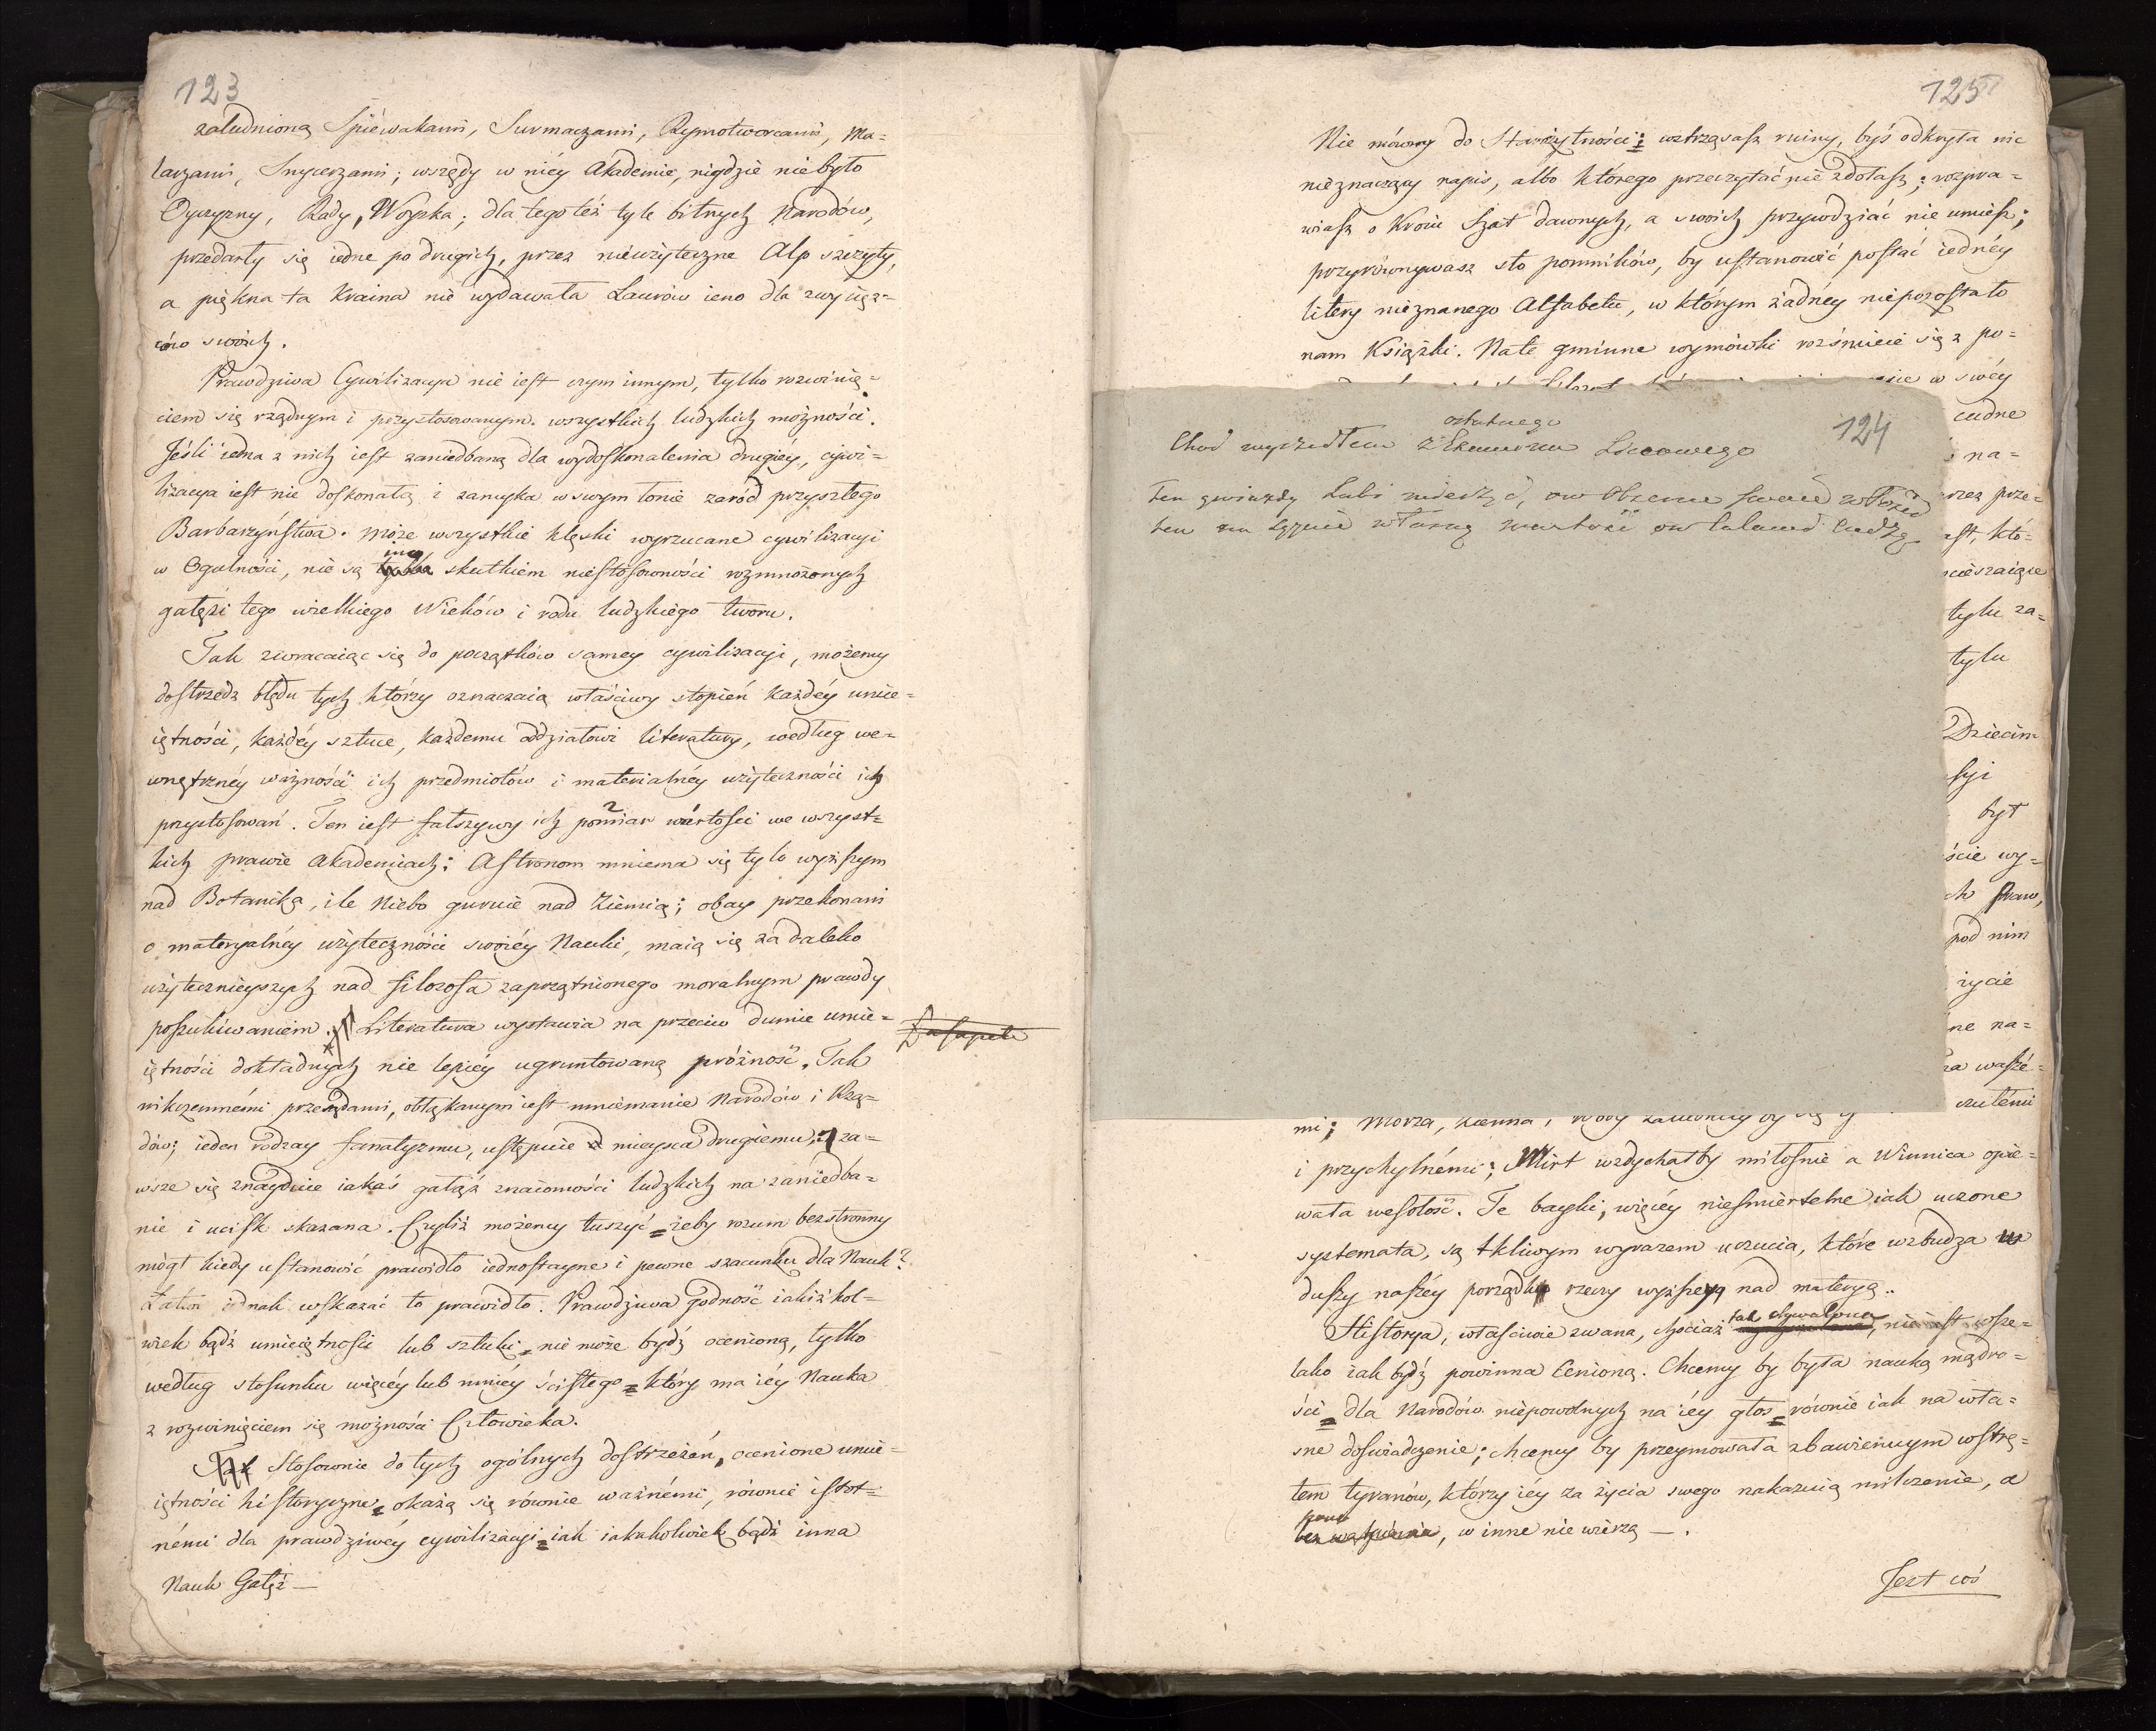 123
zaludnioną Śpiéwakami, Surmaczami, Rymotworcami, Ma=
larzami, Snycerzami; wszędy w niéy Akademie, nigdzie niebyło
Oyczyzny, Rady, Woyska; dla tego też tyle bitnych Narodów,
przedarły się iedne po drugich, przez nieużyteczne Alp szczyty,
a piękna ta Kraina nie wydawała Laurów ieno dla zwycięz=
ców swoich.
Prawdziwa Cywilizacya nie iest czym innym, tylko rozwinię=
ciem się rządnym i przystosowanym wszystkich ludzkich możności.
Jeśli iedna z nich iest zaniedbaną dla wydoskonalenia drugiéy, cywi=
lizacya iest nie doskonałą i zamyka w swym łonie zaród przyszłego
Barbarzyństwa. Może wszystkie klęski wyrzucane cywilizacyi
w Ogulności, nie są skutkiem niestosowności rozmnożonych
gałęzi tego wielkiego Wieków i rodu ludzkiego tworu.
Tak zwracaiąc się do początków samey cywilizacyi, możemy
dostrzedz błędu tych którzy oznaczaią właściwy stopień każdéy umie=
iętności, każdéy sztuce, każdemu oddziałowi literatury, według we=
wnętrznéy ważności ich przedmiotów i materialnéy użyteczności ich
przystosowań. Ten iest fałszywy ich pomiar wártosci we wszyst=
kich prawie Akademiach: Astronom mniema się tylo wyższym
nad Botanika, ile Niebo guruie nad Ziemią; obay przekonani
o materyalnéy użyteczności swoiéy Nauki, maią się za daleko
użytecznieyszych nad filozofa zaprzątnionego moralnym prawdy
poszukiwaniem. Literatura wystawia na przeciw dumie umie=
iętności dokładnych nie lepiéy ugruntowaną próżność. Tak
nikczemnémi przesądami, obłąkanym iest mniemanie Narodów i Rzą=
dów; ieden rodzay fanatyzmu, ustępuie mieysca drugiemu, i za=
wsze się znayduie iakaś gałąź znaiomości ludzkich na zaniedba=
nie i ucisk skazana. Czyliż możemy tuszyć = żeby rozum bezstronny
mógł kiedy ustanowić prawidło iednostayne i pewne szacunku dla Nauk?
Łatwo iednak wskazać to prawidło. Prawdziwa godność iakiżkol=
wiek bądź umieiętności lub sztuki = nie może bydź ocenioną, tylko
według stosunku więcéy lub mniéy ścisłego = który ma iéy Nauka
z rozwinięciem się możności Człowieka.
Stosownie do tych ogólnych dostrzeżeń, ocenione umie=
iętności historyczne = okażą się równie ważnémi, równie istot=
némi dla prawdziwéy cywilizacyi = iak iakakolwiek bądź inna
Nauk Gałęź —
125
Nie mówmy do Starożytności: wstrząsasz ruiny, byś odkryła nic
nieznaczący napis, albo którego przeczytać nie zdołasz; rozpra=
wiasz o Kroiu Szat dawnych, a swoich przywdziać nie umiesz;
przyrównywasz sto pomników, by ustanowić postać iednéy
litery nieznanego Alfabetu, w którym żadnéy niepozostało
nam Książki. Na te gminne wymówki rozśmieie się z po=
w swéy
124
ostatnego
Chod wyszedłem z Liceowego
ten gwiazdy Lubi mierzyć, ow
ten własną wartość ow
cudne
na=
prze=
ktö=
tylu za=
tylu
Dziecin
syi
był
ście wy=
praw,
pod nim
życie
ne na=
na waszé=
czułémi
mi; Morza,
i przychylnémi; Mirt wzdychałby miłośnie a Winnica opié=
wała wesołość. Te bayki, więcéy nieśmiertelne iak uczone
systemata, są tkliwym wyrazem uczucia, które wzbudza w
duszy naszéy porządku rzeczy wyższego nad materyą..
Historya, właściwie zwana, chociaż tak chwalona, nie iest wsze=
lako iak bydź powinna Cenioną. Chcemy by była nauką mądro=
ści = dla Narodów niepowolnych na iéy głos = równie iak na wła=
sne doświadczenie; chcemy by przeymowała zbawiennym wstrę=
tem tyranów, którzy iéy za życia swego nakazuią milczenie, a
bez wątpienia, w inne nie wierzą —.
Jest coś